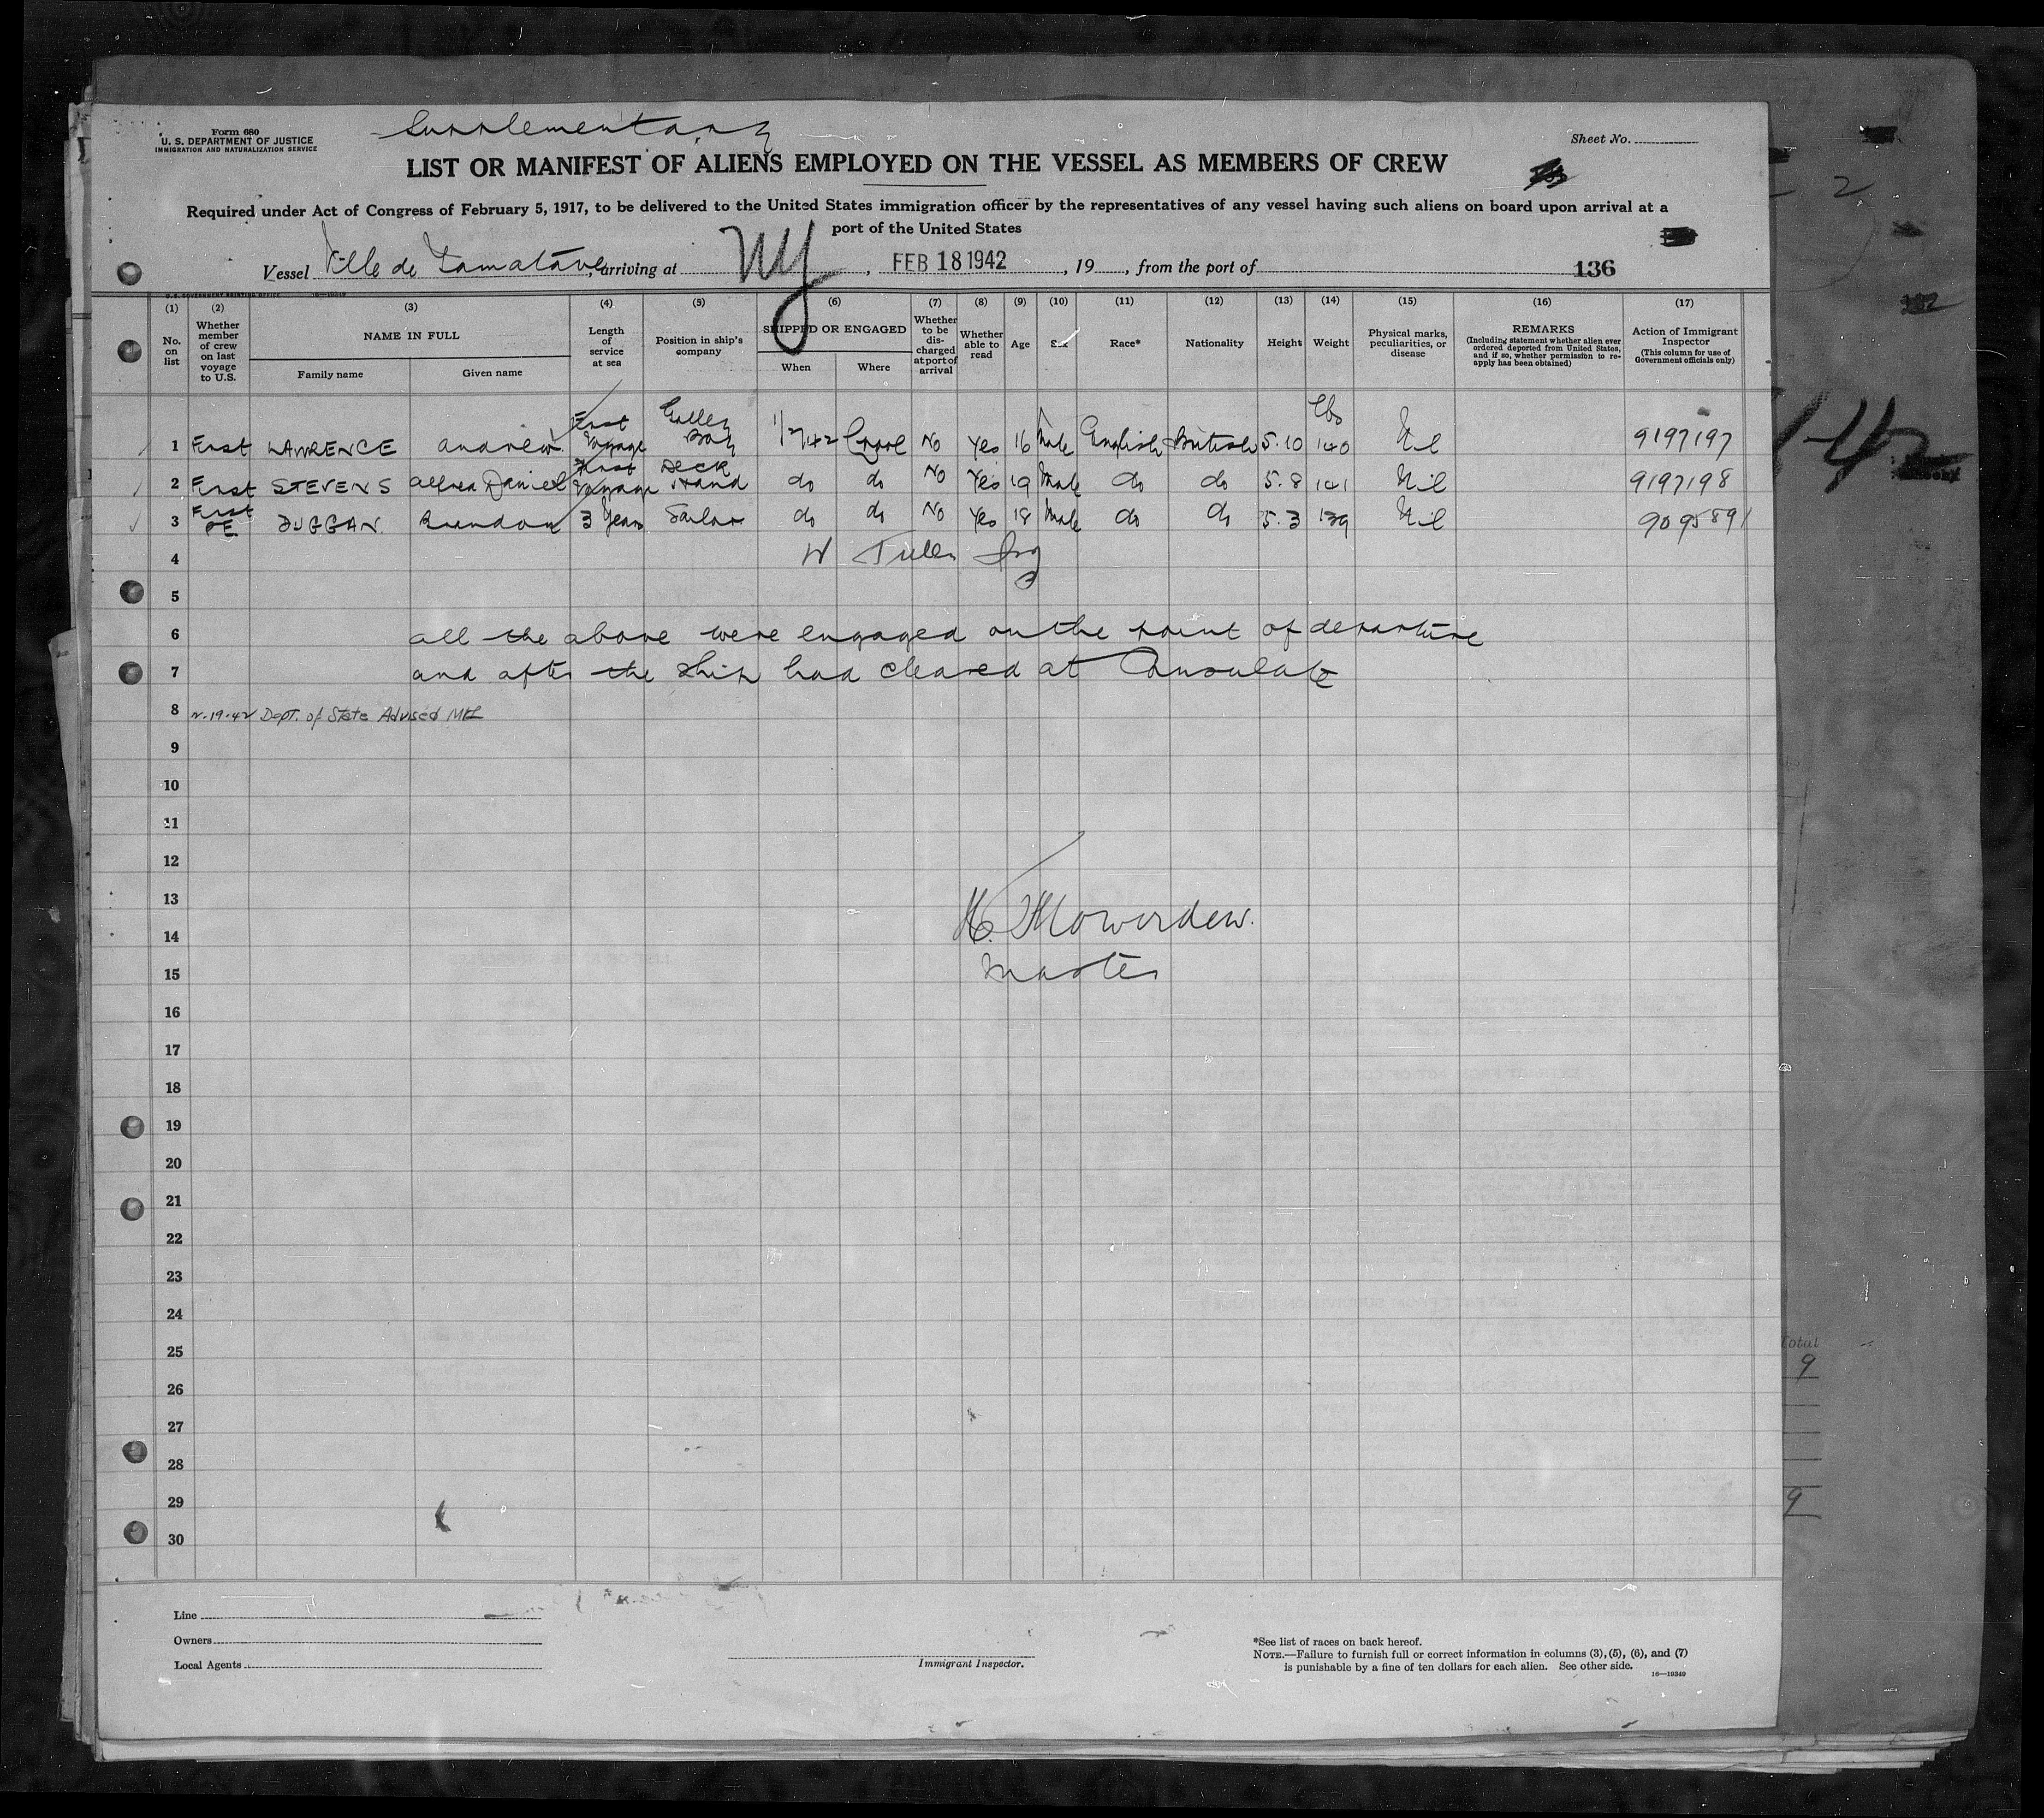 Supplementary
Form 680
U. S. DEPARTMENT OF JUSTICE
IMMIGRATION AND NATURALIZATION SERVICE
Sheet No.
LIST OR MANIFEST OF ALIENS EMPLOYED ON THE VESSEL AS MEMBERS OF CREW
Required under Act of Congress of February 5, 1917, to be delivered to the United States immigration officer by the representatives of any vessel having such aliens on board upon arrival at a
port of the United States
Vessel Ville de Tamatave, arriving at NY, FEB 18 1942, 19, from the port of 136
U.S. GOVERNMENT PRINTING OFFICE
(1) (2) (3) (4) (5) (6) (7) (8) (9) (10) (11) (12) (13) (14) (15) (16) (17)
No. on list
Whether member of crew on last voyage to U.S.
NAME IN FULL
Family name
Given name
Length of service at sea
Position in ship's company
SHIPPED OR ENGAGED
When
Where
Whether to be discharged at port of arrival
Whether able to read
Age
Sex
Race*
Nationality
Height
Weight
Physical marks, peculiarities, or disease
REMARKS
(Including statement whether alien ever ordered deported from United States, and if so, whether permission to reapply has been obtained)
Action of Immigrant Inspector
(This column for use of Government officials only)
1 First LAWRENCE Andrew First Voyage Galley Boy 1/2/42 L'pool No Yes 16 Male English British 5.10 lbs 140 Nil 9197197
2 First STEVENS Alfred Daniel First Voyage Deck Hand do do No Yes 19 Male do do 5.8 141 Nil 9197198
3 First PE DUGGAN. Brendan 3 Years Sailor do do No Yes 18 Male do do 5.3 139 Nil 9095891
4 W
5
6 all the above were engaged on the point of departure
7 and after the ship had cleared at Consulate
8 2.19.42 Dept. of State Advised
9
10
11
12
13
14
15
H. Flowerdew.
Master
16
17
18
19
20
21
22
23
24
25
26
27
28
29
30
Line
Owners
Local Agents
Immigrant Inspector.
*See list of races on back hereof.
NOTE.—Failure to furnish full or correct information in columns (3), (5), (6), and (7)
is punishable by a fine of ten dollars for each alien. See other side.
16—19349
Total
9
9